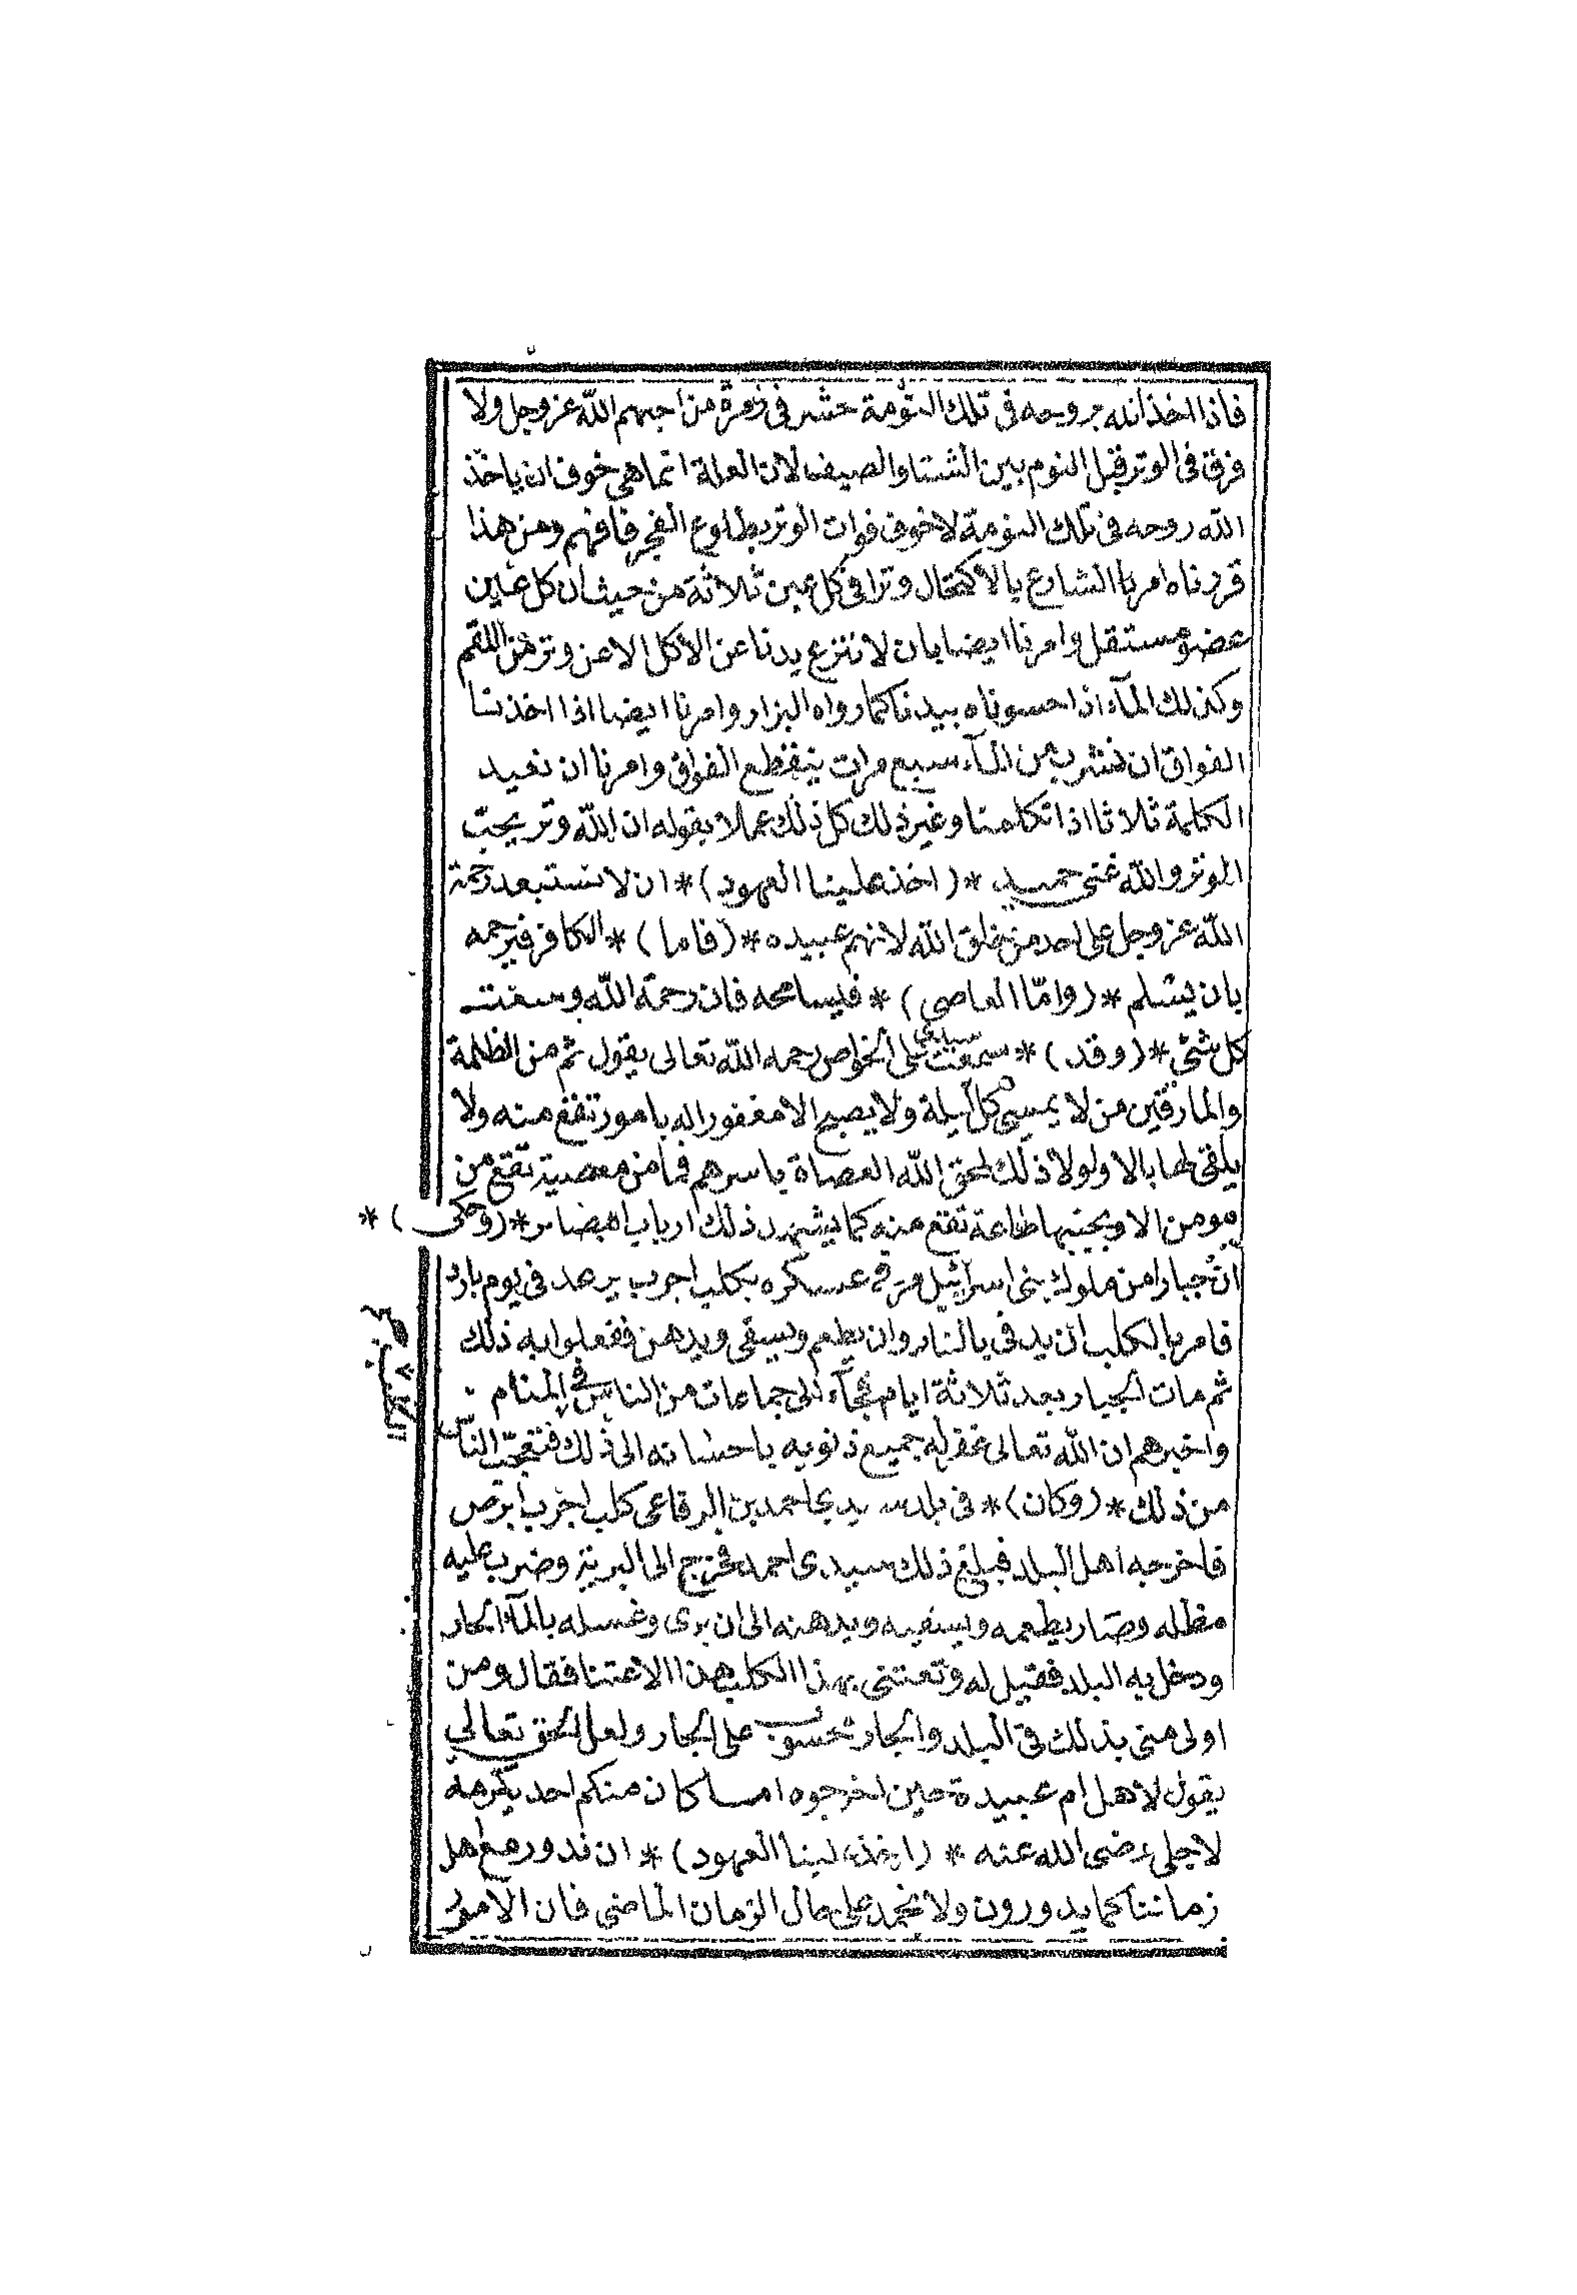 فاذا اخذ الله بروحه فى تلك النومة حشر فى زمرة من احبهم الله عز وجل ولا
فرق فى الوتر قبل النوم بين الشتا والصيف لان العلة انما هى خوف ان ياخذ
الله روحه فى تلك النومة لا خوف فوات الوتر بطلوع الفجر فافهم ومن هذا
قررناه امرنا الشارع بالاكتحال وترا فى كل عين ثلاثة من حيث ان كل عين
عضو مستقل وامرنا ايضا بان لا ننزع يدنا عن الاكل الا عن وتر من اللقم
وكذلك المآء اذا حسوناه بيدنا كما رواه البزار وامرنا ايضا اذا اخذنا
الفواق ان نشرب من المآء سبع مرات ينقطع الفواق وامرنا ان نعيد
الكلمة ثلاثا اذا تكلمنا وغير ذلك كل ذلك عملا بقوله ان الله وتر يحبّ
الوتر والله غنى حميد * (اخذ علينا العهود) * ان لا نستبعد رحمة
الله عز وجل على احد من خلق الله لانهم عبيده * (فاما) * الكافر فيرحمه
بان يسلم * (وامّا العاصى) * فيسامحه فان رحمة الله وسعت
كل شئ * (وقد) * سمعت سيدى على الخواص رحمه الله تعالى يقول ثم من الظلمة
والمارقين من لا يمسى كل ليلة ولا يصبح الا مغفورا له بامور تقع منه ولا
يلقى لها بالا ولولا ذلك لمحق الله العصاة باسرهم فما من معصية تقع من
مومن الا وبجنبها طاعة تقع منه كما يشهد ذلك ارباب البصاير * (وحكى) *
انّ جبارا من ملوك بنى اسرائيل مرّ فى عسكره بكلب اجرب يرعد فى يوم بارد
فامر بالكلب ان يدفى بالنار وان يطعم ويسقى ويدهن ففعلوا به ذلك
ثم مات الجبار بعد ثلاثة ايام فجآء الى جماعات من الناس فى المنام
واخبرهم ان الله تعالى غفر له جميع ذنوبه باحسانه الى ذلك فتعجّب الناس
من ذلك * (وكان) * فى بلد سيدى احمد بن الرفاعى كلب اجرب ابرص
فاخرجه اهل البلد فبلغ ذلك سيدى احمد فخرج الى البرية وضرب عليه
مظله وصار يطعمه ويسقيه ويدهنه الى ان برى وغسله بالمآء الحار
ودخل به البلد فقيل له وتعتنى بهذا الكلب هذا الاعتنا فقال ومن
اولى منى بذلك فى البلد والجار محسوب على الجار ولعل الحق تعالى
يقول لاهل ام عبيدة حين اخرجوه اما كان منكم احد يكرمه
لاجلى رضى الله عنه * (اخذ علينا العهود) * ان ندور مع اهل
زماننا كما يدورون ولا نجمد على حال الزمان الماضى فان الامور